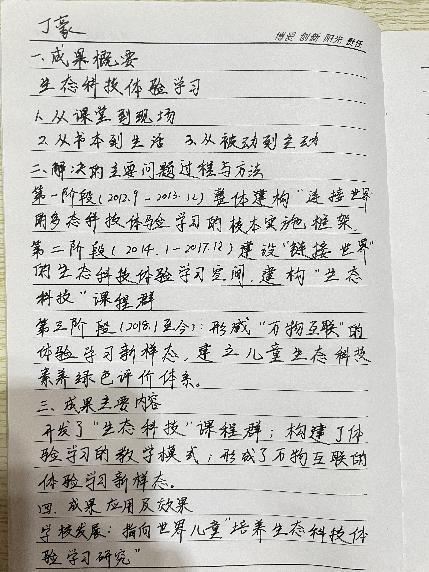 丁豪
博爱 创新 阳光 责任
一.成果概要
生态科技体验学习
1.从课堂到现场
2.从书本到生活 3.从被动到主动
二.解决的主要问题过程与方法
第一阶段(2012.9-2013.12)整体建构"连接世界"
的生态科技体验学习的校本实施框架
第二阶段(2014.1-2017.12)建设"链接世界"
的生态科技体验学习空间,建构"生态
科技"课程群
第三阶段(2018.1至今):形成"万物互联"的
体验学习新样态,建立儿童生态科技
素养绿色评价体系。
三、成果主要内容
开发了"生态科技"课程群;构建了体
验学习的教学模式;形成了万物互联的
体验学习新样态。
四.成果应用及效果
学校发展:指向世界儿童"培养生态科技体
验学习研究"